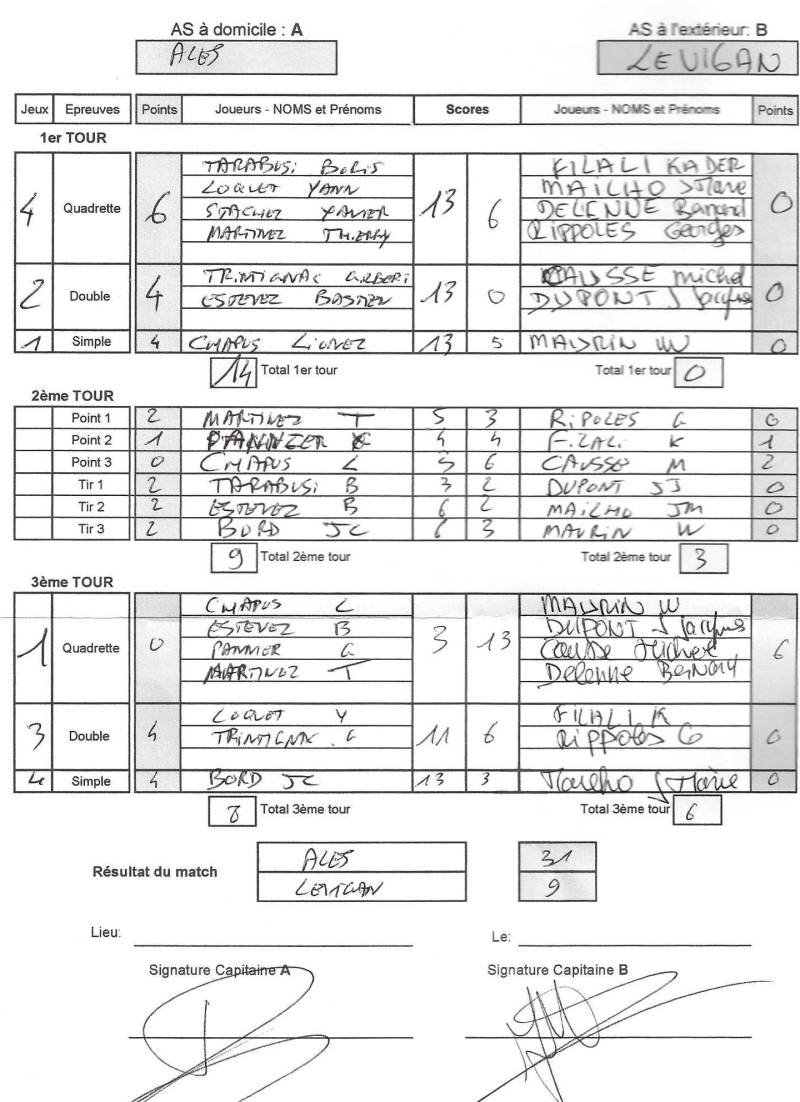 AS à domicile : A AS à l'extérieur: B
ALES LEVIGAN
Jeux Epreuves Points Joueurs - NOMS et Prénoms Scores Joueurs - NOMS et Prénoms Points
1er TOUR
TARABUSi BORIS FILALI KADER
LOQUET YANN MAILHO JMarie
4 Quadrette 6 STACHEZ XAVIER 13 6 DELENNE Bernard 0
MARTINEZ THIERRY RIPPOLES Georges
TRINTIGNAC GILBERT CAUSSE michel
2 Double 4 ESTEVEZ BASTIEN 13 0 DUPONT J Jacques 0
1 Simple 4 CHAPUS LIONEL 13 5 MAURIN W 0
14 Total 1er tour Total 1er tour 0
2ème TOUR
Point 1 2 MARTINEZ T 5 3 RiPOLES G 0
Point 2 1 PANNIER G 4 4 FiLALi K 1
Point 3 0 CHAPUS L 5 6 CAUSSE M 2
Tir 1 2 TARABUSi B 3 2 DUPONT JJ 0
Tir 2 2 ESTEVEZ B 6 2 MAiLHO JM 0
Tir 3 2 BORD JC 6 3 MAURiN W 0
9 Total 2ème tour Total 2ème tour 3
3ème TOUR
CHAPUS L MAURIN W
ESTEVEZ B DUPONT J Jacques
1 Quadrette 0 PANNIER G 3 13 Michel 6
MARTINEZ T Delenne Bernard
LOQUET Y FILALI K
3 Double 4 TRINTIGNAC G 11 6 RiPPOLES G 0
4 Simple 4 BORD JC 13 3 JMarie 0
8 Total 3ème tour Total 3ème tour 6
Résultat du match ALES 31
LEVIGAN 9
Lieu: Le:
Signature Capitaine A Signature Capitaine B